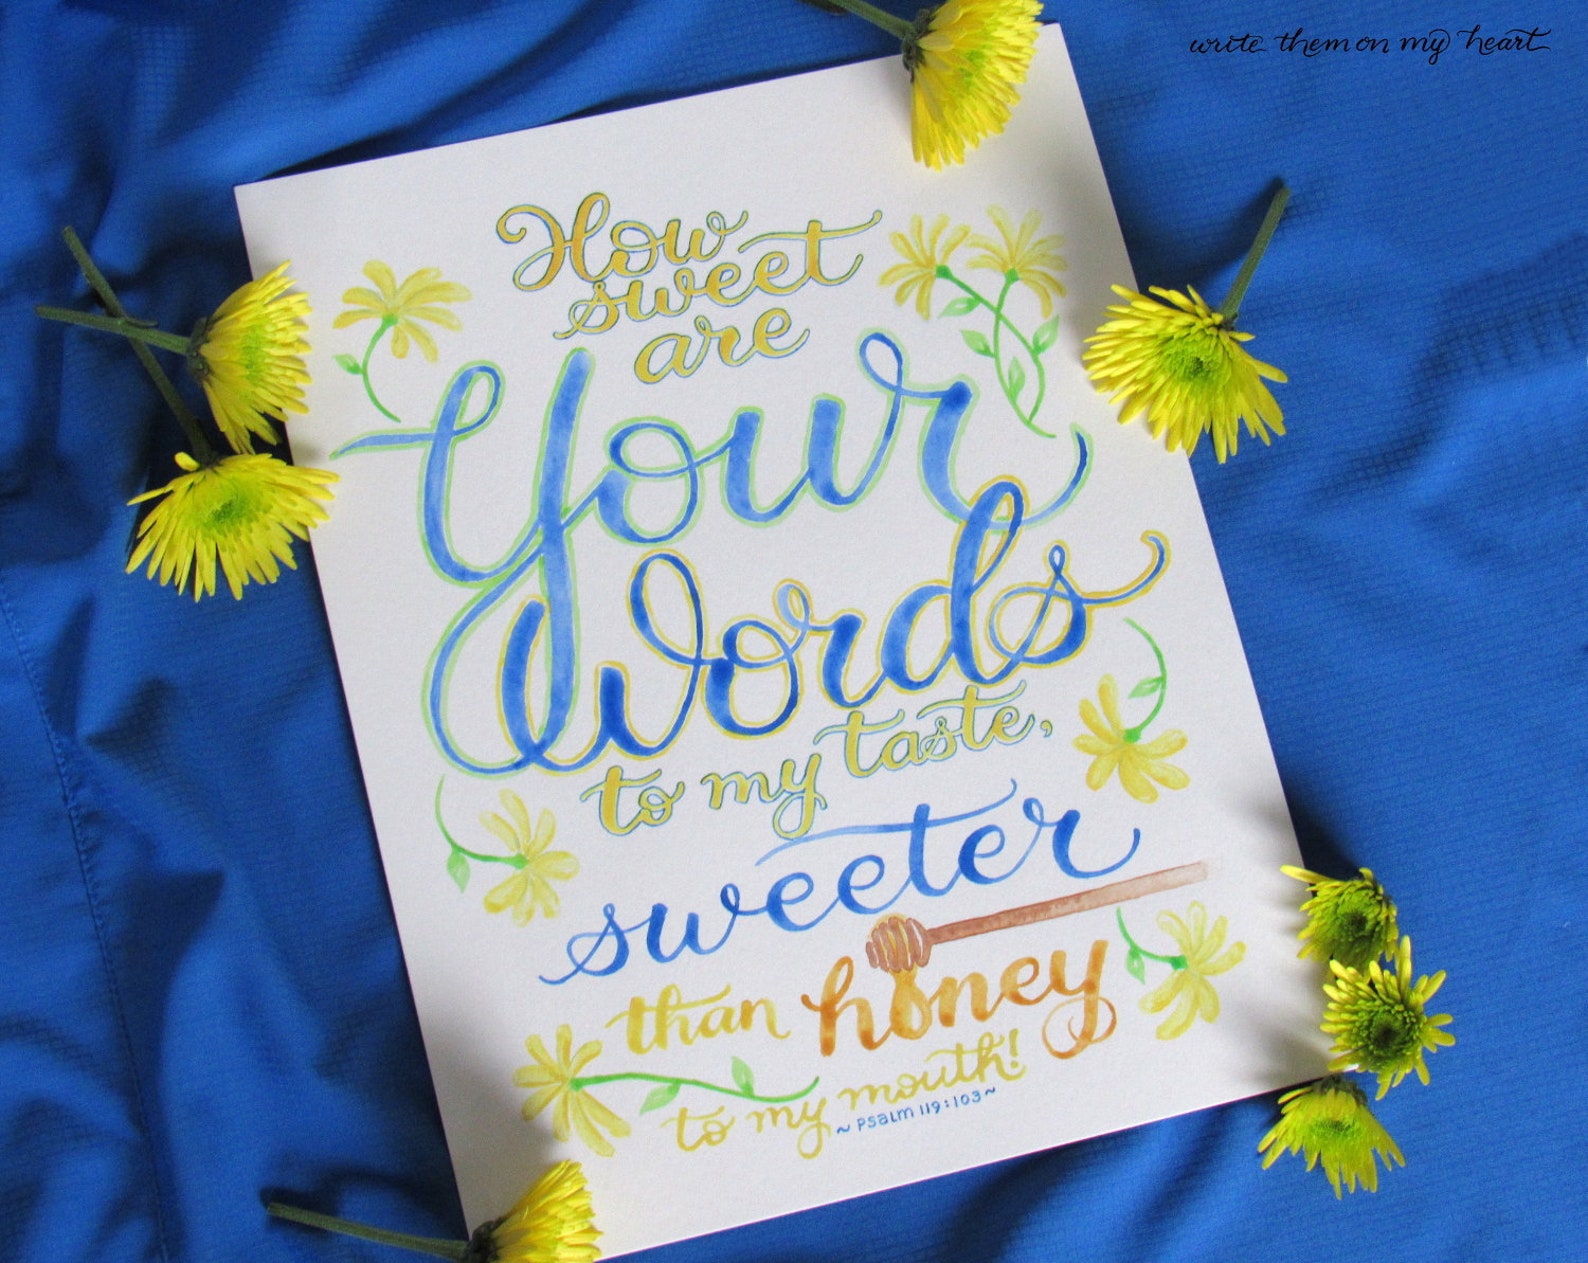 write them on my heart
How
sweet
are
Your
Words
to my taste,
sweeter
than honey
to my mouth!
~ Psalm 119:103 ~